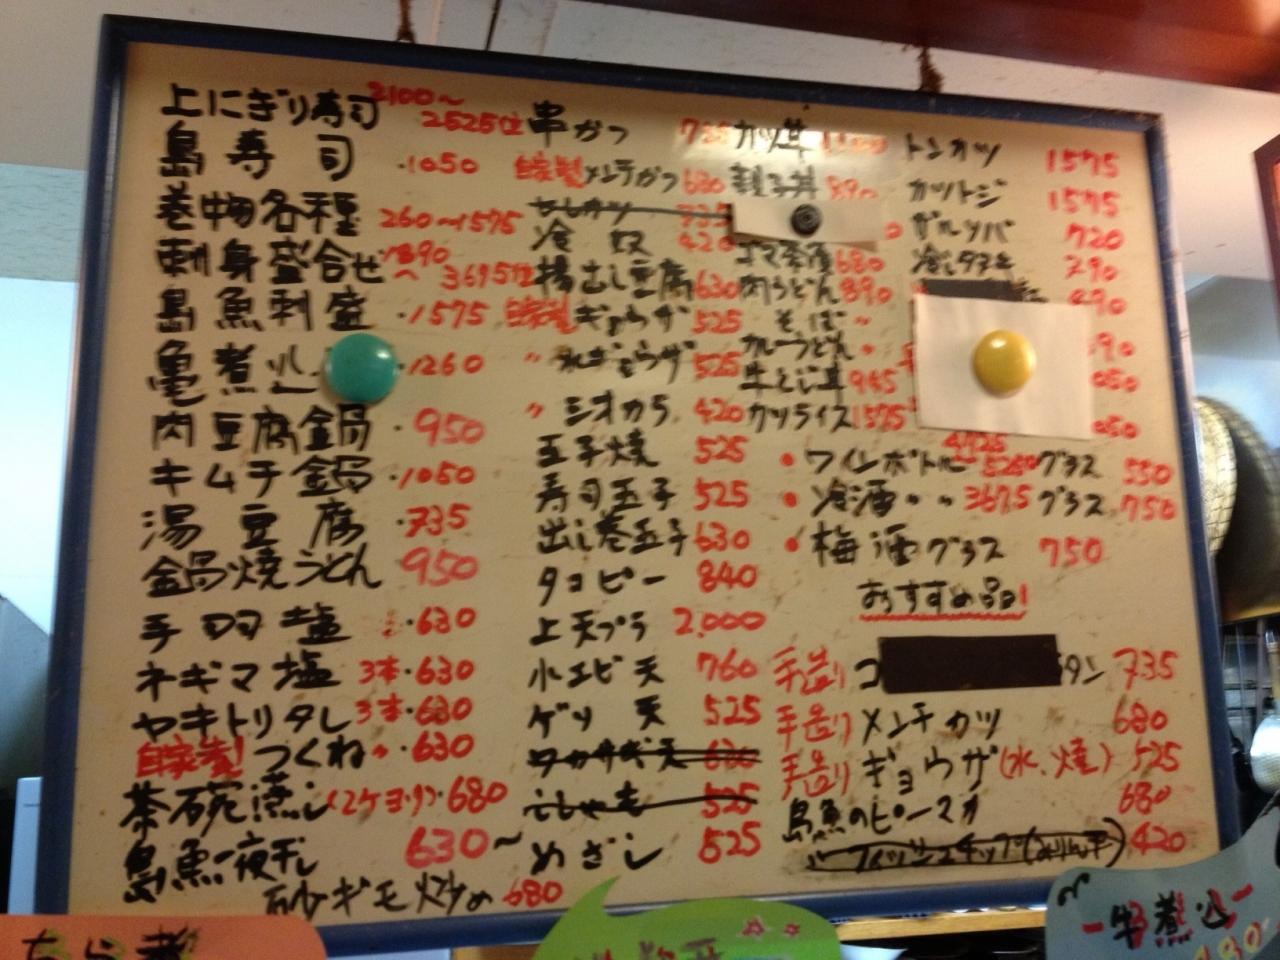 上にぎり寿司 2100～ 2525仕
島寿司 ・1050
巻物各種 260～1575
刺身盛合せ 890～ 3695仕
島魚刺盛 ・1575
亀煮込 ・1260
肉豆腐鍋 ・950
キムチ鍋 ・1050
湯豆腐 ・735
鍋焼うどん 950
手羽塩 ・630
ネギマ塩 3本・630
ヤキトリタレ 3本・630
自家製！つくね 〃・630
茶碗蒸し(2ケヨリ)・680
島魚一夜干し 630～
砂ギモ炒め 680
串かつ 735
自家製メンチかつ 630
735
冷奴 420
揚出し豆腐 630
自家製ギョウザ 525
〃 水ギョウザ 525
〃 シオカラ 420
玉子焼 525
寿司玉子 525
出し巻玉子 630
タコピー 840
上天プラ 2,000
小エビ天 760
ゲソ天 525
ワカサギ天 630
ししゃも 525
めざし 525
カツ丼
親子丼 890
ゴマ茶漬 680
肉うどん 890
そば 〃
カレーうどん 〃
牛とじ丼 945
カツライス 1575
トンカツ 1575
カツトジ 1575
720
冷しタヌキ 790
890
90
050
050
・ワインボトル 4725 5250 グラス 550
・冷酒・・3675 グラス 750
・梅酒グラス 750
おすすめ品！
手造り コ タン 735
手造り メンチカツ 680
手造り ギョウザ(水、焼) 525
島魚のピーマカ 680
フィッシュチップ 420
牛煮込